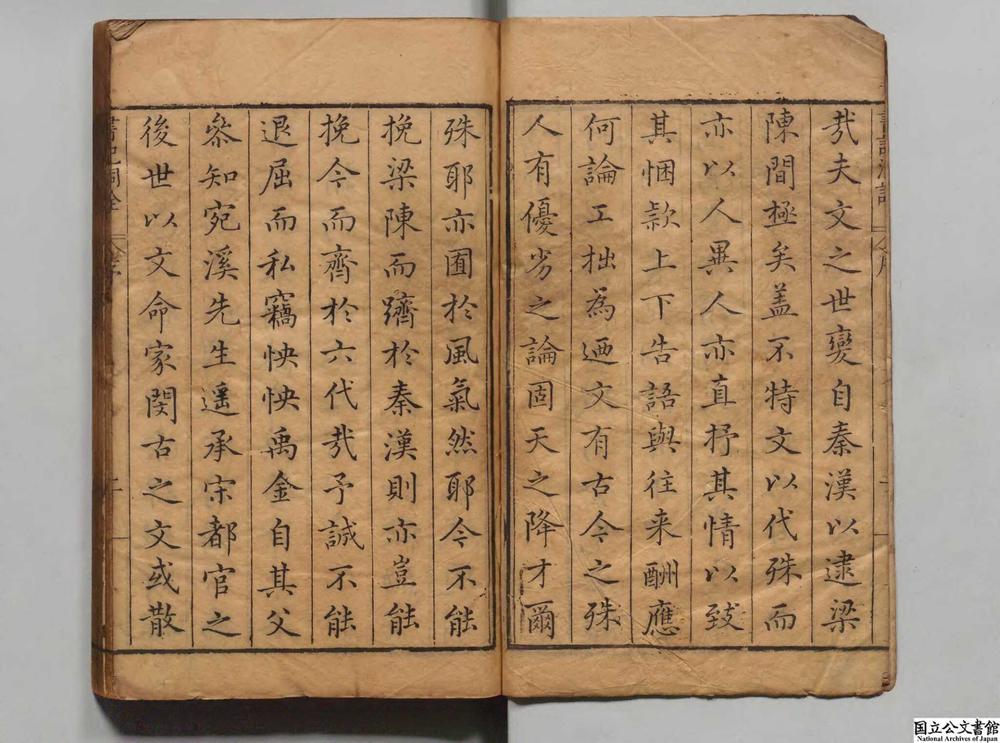 哉夫文之世變自秦漢以逮梁
陳間極矣盖不特文以代殊而
亦以人異人亦直抒其情以致
其悃款上下告語與往来酬應
何論工拙為迺文有古今之殊
人有優劣之論固天之降才爾
殊耶亦囿於風氣然耶今不能
挽梁陳而躋於秦漢則亦豈能
挽今而齊於六代哉予誠不能
退屈而私竊怏怏禹金自其父
叅知宛溪先生遥承宋都官之
後世以文命家閔古之文或散
書記洞詮
国立公文書館
National Archives of Japan